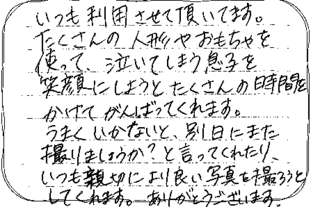 いつも利用させて頂いてます。
たくさんの人形やおもちゃを
使って、泣いてしまう息子を
笑顔にしようとたくさんの時間を
かけてがんばってくれます。
うまくいかないと、別日にまた
撮りましょうか?と言ってくれたり、
いつも親切により良い写真を撮ろうと
してくれます。ありがとうございます。